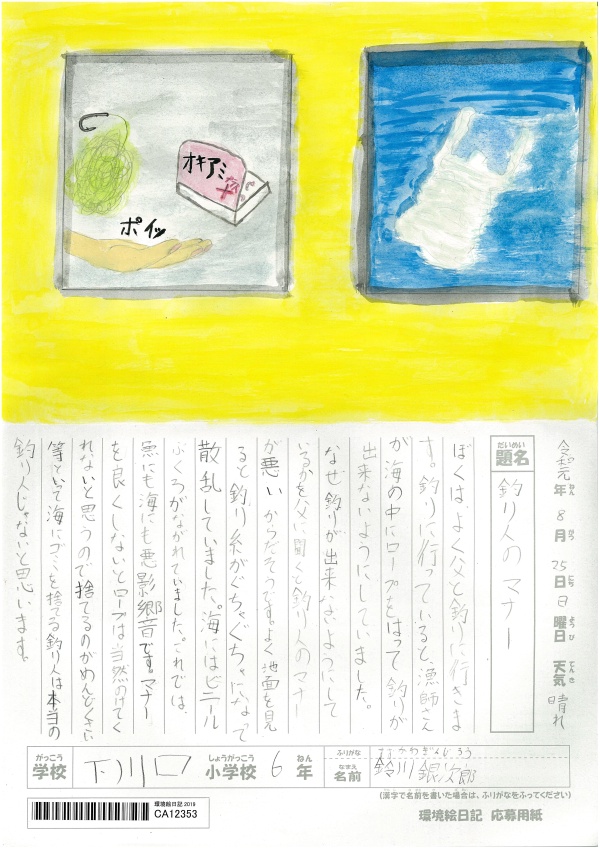 オキアミ
ポイッ
令和元年 8月 25日 日曜日 天気 晴れ
ねん がつ にち ようび てんき
だいめい
題名
釣り人のマナー
ぼくは、よく父と釣りに行きま
す。釣りに行っていると、漁師さん
が海の中にロープをはって釣りが
出来ないようにしていました。
なぜ釣りが出来ないようにして
いるかを父に聞くと釣り人のマナ
が悪いからだそうです。よく地面を見
ると釣り糸がぐちゃぐちゃになって
散乱していました。海にはビニール
ぶくろがながれていました。これでは、
魚にも海にも悪影響です。マナー
を良くしないとロープは当然のけてく
れないと思うので捨てるのがめんどくさい
等といって海にゴミを捨てる釣り人は本当の
釣り人じゃないと思います。
がっこう しょうがっこう ねん
学校 下川口 小学校 6年
ふりがな
なまえ
名前 鈴川 銀次郎
(漢字で名前を書いた場合は、ふりがなをふってください)
環境絵日記 2019
CA12353
環境絵日記 応募用紙